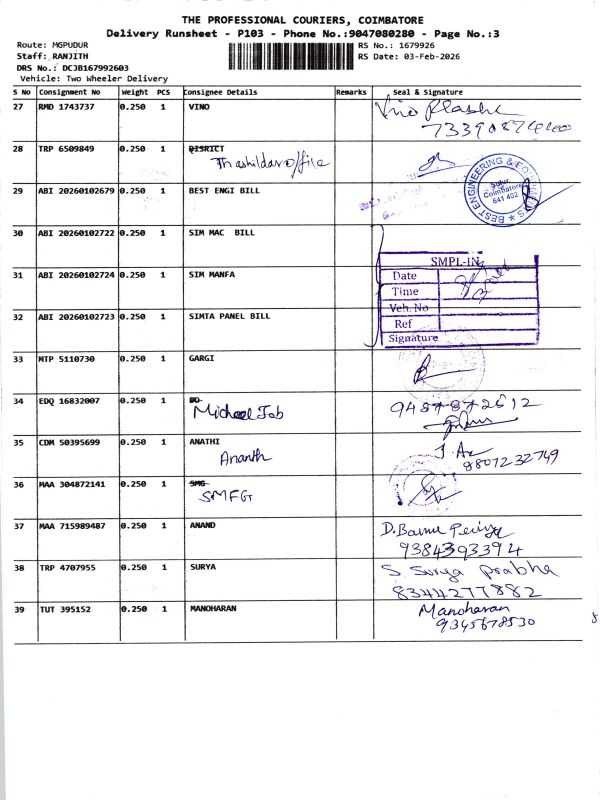 THE PROFESSIONAL COURIERS, COIMBATORE
Delivery Runsheet - P103 - Phone No.:9047080280 - Page No.:3
Route: MGPUDUR
RS No.: 1679926
Staff: RANJITH
RS Date: 03-Feb-2026
DRS No.: DCJB167992603
Vehicle: Two Wheeler Delivery
S No Consignment No Weight PCS Consignee Details Remarks Seal & Signature
27 RMD 1743737 0.250 1 VINO
Vino
28 TRP 6509849 0.250 1 DISRICT
Thashildar office
29 ABI 20260102679 0.250 1 BEST ENGI BILL
BEST ENGINEERING &
Coimbatore
641 402
30 ABI 20260102722 0.250 1 SIM MAC BILL
SMPL-IN
Date
Time
Veh. No
Ref
Signature
31 ABI 20260102724 0.250 1 SIM MANFA
32 ABI 20260102723 0.250 1 SIMTA PANEL BILL
33 MTP 5110730 0.250 1 GARGI
34 EDQ 16832007 0.250 1
Michael Job
9487872612
35 CDM 50395699 0.250 1 ANATHI
Ananth
9807232749
36 MAA 304872141 0.250 1 SMG
SMFG
37 MAA 715989487 0.250 1 ANAND
9384393394
38 TRP 4707955 0.250 1 SURYA
S. Surya prabha
8344277882
39 TUT 395152 0.250 1 MANOHARAN
Manoharan
9345678530